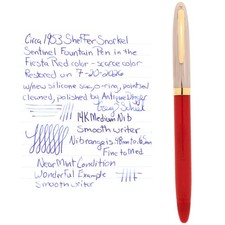 Circa 1953 Sheaffer Snorkel
Sentinel Fountain Pen in the
Fiesta Red color - scarce color
Restored on 7-20-2026
w/new silicone sac, o-ring, point seal
cleaned, polished by
14K Medium Nib
Smooth writer
Nib range is .48mm to .65mm
Fine to Med
Near Mint Condition
Wonderful Example
Smooth writer